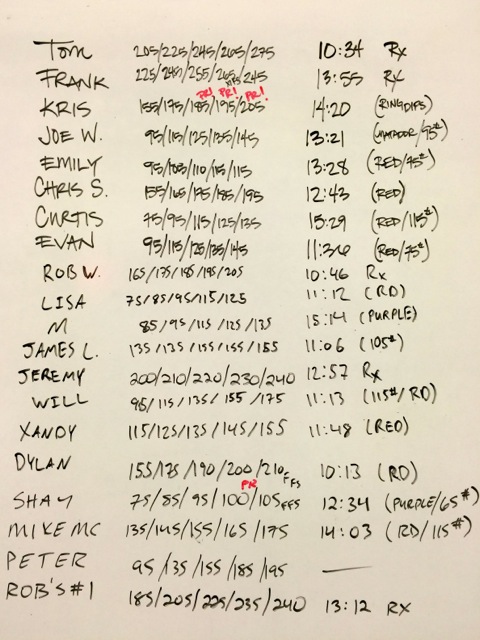 Tom 205/225/245/265/275 10:34 Rx
FRANK 225/245/255/265/245 13:55 Rx
PR! PR! PR!
KRIS 155/175/185/195/205 14:20 (RING DIPS)
JOE W. 95/115/125/135/145 13:21 (MATADOR/95#)
EMILY 95/105/110/115/115 13:28 (RED/75#)
CHRIS S. 155/165/175/185/195 12:43 (RED)
CURTIS 75/95/115/125/135 15:29 (RED/115#)
EVAN 95/115/125/135/145 11:36 (RED/75#)
ROB W. 165/175/185/195/205 10:46 Rx
LISA 75/85/95/115/125 11:12 (RD)
M 85/95/115/125/135 15:14 (PURPLE)
JAMES L. 135/135/155/155/155 11:06 (105#)
JEREMY 200/210/220/230/240 12:57 Rx
WILL 95/115/135/155/175 11:13 (115#/RD)
XANDY 115/125/135/145/155 11:48 (RED)
DYLAN 155/175/190/200/210 FFS 10:13 (RD)
PR
SHAY 75/85/95/100/105 FFS 12:34 (PURPLE/65#)
MIKE MC 135/145/155/165/175 14:03 (RD/115#)
PETER 95/135/155/185/195 —
ROB'S #1 185/205/225/235/240 13:12 RX